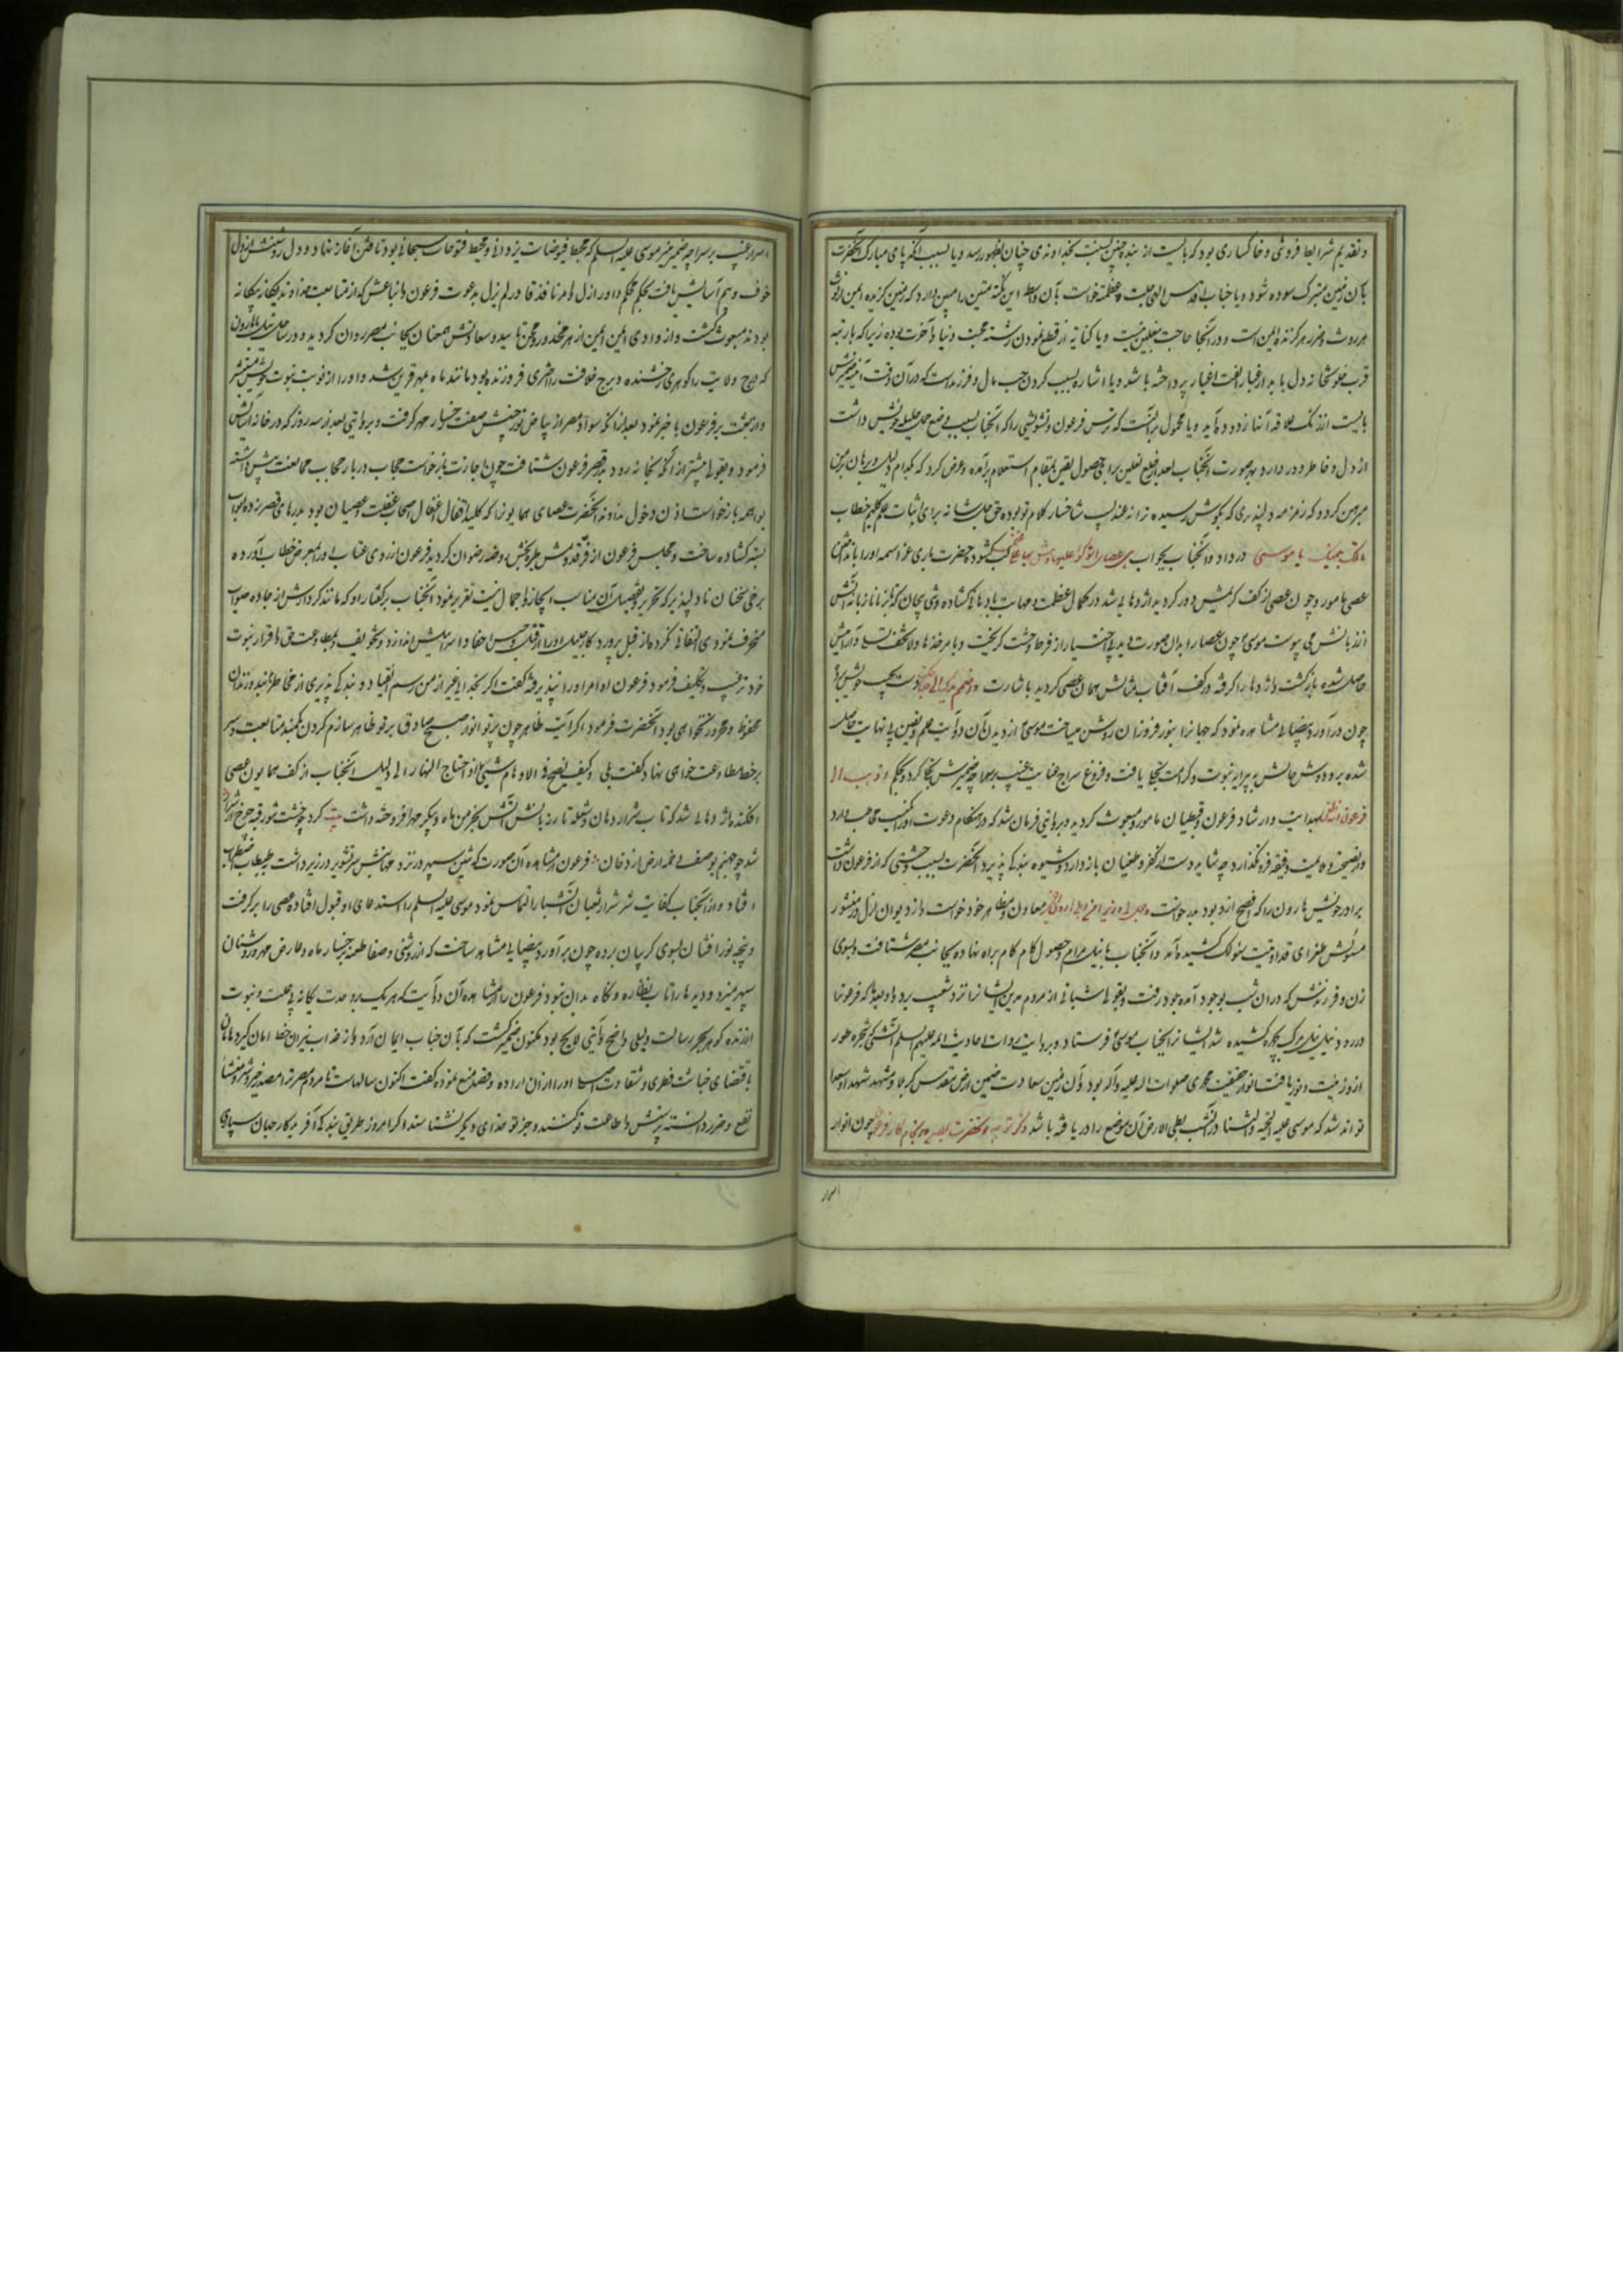 و تقدیم شرایط فروتنی و خاکساری بود که بایست از بنده چنین نسبت بخداوندی چنان بظهور رسد و یا بسبب آنکه پای مبارک آنحضرت
بآن زمین متبرک سوده شود و یا جناب اقدس الهی جلت عظمته خواست بآن واسطه این نکته متین را مبین دارد که چنین گزیده ایمن از لوث
هر روث و ضرر هر گزنده ایمن است و در آنجا حاجت بنعلین نیست و یا کنایه از قطع نمودن رشته محبت دنیا و آخرت بوده زیرا که بار تبه
قرب خلوتخانه دل باید از غبار الفت اغیار پرداخته باشد و یا اشاره بسبب کردن حب مال و فرزند است که در آن وقت آینه ضمیرش
بایست از زنگ علاقه آنها زدوده آید و یا محمول بر آنست که ترس فرعون و تشویشی را که آنجناب بسبب وضع حمل حلیله خویش داشت
از دل و خاطر دور دارد بهر صورت آنجناب بعد از خلع نعلین برای حصول یقین بمقام استعلام برآمده و عرض کرد که بکدام دلیل و برهان مرا
مبرهن گردد که زمزمه دلپذیری که بگوش رسیده ترانه عندلیب شاخسار کلام تو بوده حق جل شانه برای اثبات علم کلیم خطاب
ما تلک بیمینک یا موسی در داد و آنجناب بجواب هی عصای اتوکؤ علیها و اهش بها علی غنمی لب گشود حضرت باری عز اسمه او را بانداختن
عصی مامور و چون عصی از کف کریمش دور گردید اژدهایی شد در کمال عظمت و مهابت با دهانی گشاده و تنی پیچان که هر زمان زبانه آتش
از دهانش می پیوست موسی چون عصا را بدان صورت دید بی اختیار از فرط وحشت گریخت و بامر خذها و لا تخف تسلی و آرامش
حاصل شده بازگشت و اژدها را گرفته در کف آفتاب تابش همان عصی گردید باشارت و اضمم یدک الی جناحک دست بجیب خویش برده
چون درآورد بیضایی مشاهده نمود که جهانرا بنور فروزان روشن میساخت موسی از دیدن آن دو آیت علم و یقین بی نهایت حاصل
شده بر و دوش حالش به پیرایه نبوت و کرامت تجلی یافت و فروغ سراج عنایت غیب بر ساحه ضمیرش تجلی کرد و بحکم اذهب الی
فرعون انه طغی بهدایت و ارشاد فرعون و قبطیان مامور و مبعوث گردید و بروایتی فرمان شد که در هنگام دعوت او را
و از نصیحت و ملایمت دقیقه فرو نگذارد چه شاید دست از کفر و طغیان باز دارد و شیوه بندگی پذیرد آنحضرت بسبب وحشتی که از فرعون داشت
برادر خویش هارون را که افصح ازو بود بمدد خواست و اجعل لی وزیرا من اهلی هارون اخی معاون و مظاهر خود خواست و از دیوان ازل در منشور
مسئولش طغرای قد اوتیت سؤلک کشیده آمد و آنجناب با نیل مرام و حصول کام گام براه نهاده بجانب مصر شتافت و بسوی
زن و فرزندش که در آن شب بوجود آمده بود رفت و بقولی شبانی از مردم مدین ایشانرا نزد شعیب برد و بعد از آنکه فرعون
در رود نیل مرگ کشیده شد ایشانرا بجناب موسی فرستاد و بروایت روات احادیث ائمه علیهم السلام آتشی که شجره طور
ازو زینت و نور یافت انوار حقیقت محمدی صلوات الله علیه و آله بود و آن زمین سعادت ضمین ارض مقدس کربلا و مشهد شهدا و سعدا
تواند شد که موسی علیه التحیة و الثنا در آن شب بطی الارض آن موضع را دریافته باشد ذکر توجه آنحضرت بمصر و انجام کار فرعون چون انوار
اسرار
اسرار غیب بر سراچه ضمیر منیر موسی علیه السلام که مهبط فیوضات یزدانی و محیط فتوحات سبحانی بود تافتن آغاز نهاد و دل روشنش از دل
خوف و بیم آسایش یافت بحکم محکم داور ازل و امر نافذ قادر لم یزل بدعوت فرعون و اتباعش که از متابعت خداوند یگانه بیگانه
بودند مبعوث گشت و از وادی ایمن ایمن از هر محذور و محن با امید و سعادتش همعنان بجانب مصر روان گردید و در ساحل نیل با هارون
که درج ولایت را گوهری رخشنده و برج خلافت را اختری فروزنده بود مانند ماه بمهر قرین شد و او را از نوبت نبوت خویش مستبشر
و از بعثت بر فرعون با خبر نمود بعد از آنکه سواد مصر از بیاض نور جبینش صفت رخسار مهر گرفت و بروایتی بعد از سه روز که در خانه آسایش
فرمود و بقولی پیشتر از آنکه بخانه رود بدر قصر فرعون شتافت چون اجازت بار خواست حجاب دربار حجاب ممانعت پیش داشته
بواهمه باز خواست اذن دخول ندادند آنحضرت عصای همایونرا که کلید اقفال اغفال اصحاب غفلت و عصیان بود بدرهای قصر زده ابواب
بسته گشاده ساخت و مجلس فرعون از فر قدومش طرب بخش روضه رضوان گردید فرعون از روی عتاب او را بمعرض خطاب آورده
برخی سخنان نادلپذیر که تحریر و تفصیل آن مناسب ایجاز و اجمال نیست تقریر نمود آنجناب بر گفتار او که مانند کردارش از جاده صواب
منحرف نمودی التفاتی نکرده از قبل پروردگار جلیل او را از قتل و حبس احفاد اسرائیل انذار و تخویف و بمطاوعت حق و اقرار نبوت
خود ترغیب و تکلیف فرمود فرعون او امر او را نپذیرفته گفت اگر بخدایی غیر از من رسم انقیاد و بندگی پذیری از مخاطره بند و زندان
محفوظ و محروز نخواهی بود آنحضرت فرمود اگر آیت ظاهر چون پرتو انوار صبح صادق بر تو ظاهر سازم گردن بکمند متابعت و سر
بر خط مطاوعت خواهی نهاد گفت بلی و کیف یصح فی الاوهام شیء اذا احتاج النهار الی دلیل آنجناب از کف همایون عصی
افکنده اژدهایی شد که تاب شرار دمان و شعله تار زبانش آتش بخرمن ماه و پیکر مهر افروخته داشت بیت کرد
شد چو جهنم بوصف دمان فرعون از مشاهده آن صورت که شین سپهر در نزد مهابتش سر تشویر در زیر داشت
افتاد و از آنجناب کفایت شر شرار ثعبان آتشبار را التماس نمود موسی علیه السلام را استدعای او قبول افتاده عصی را برگرفت
و پنجه نور افشان بسوی گریبان برده چون برآورد بیضایی مشاهد ساخت که از روشنی و صفا طعنه بر رخسار ماه و عارض مهر درخشان
سپهر میزد و دیده را تاب نظاره و نگاه بدان نبود فرعون را از مشاهده آن دو آیت که هر یک بر وحدت یگانه بیعلت و نبوت
ارزنده گوهر بحر رسالت دلیلی واضح و آیتی لایح بود مکنون ضمیر گشت که بآن جناب ایمان آرد و از عذاب نیران خطا امان گیرد هامان
باقتضای خباثت فطری و شقاوت اصلی او را از آن اراده و قصد منع نموده گفت اکنون سالهاست تا مردم مصر ترا مصدر خیر و شر و منشأ
نفع و ضرر دانسته پرستش و اطاعت تو کنند و جز تو خدای دیگر نشناسند اگر امروز طریق بندگی آفریدگار جهان سپاری